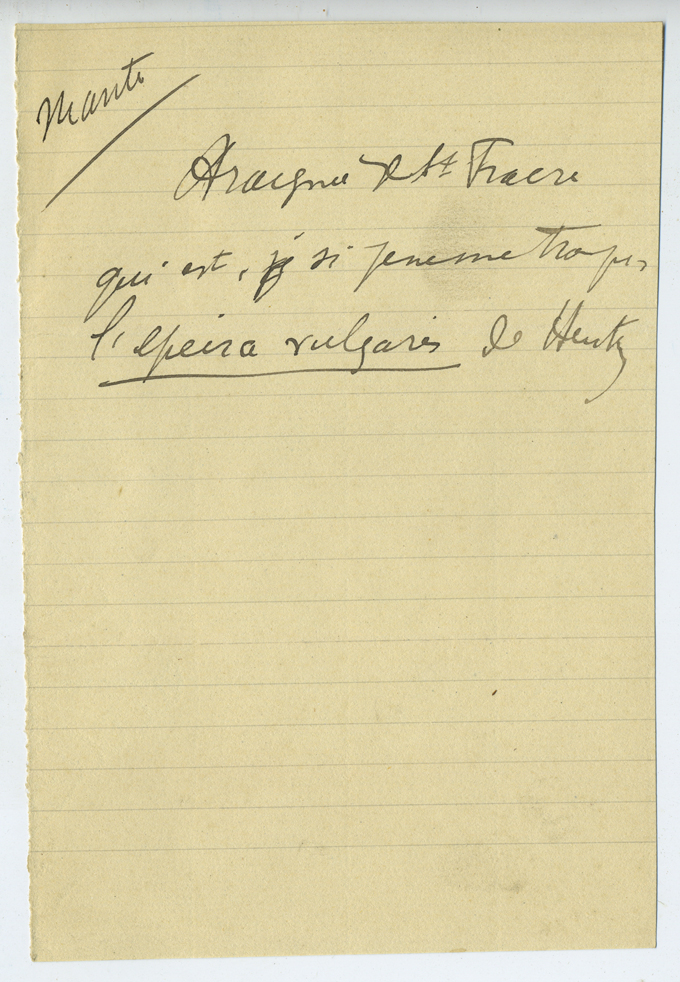 Mante
Araignée de St Fiacre
qui est, si je ne me trompe,
l'epeira vulgaris de Hentz